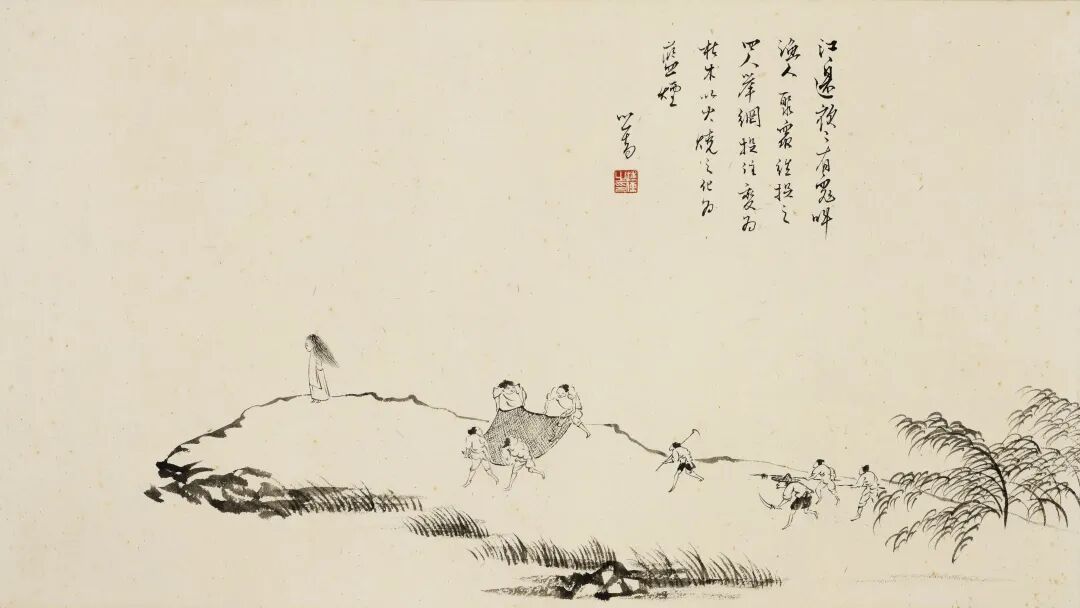 江邊夜〻有鬼叫
漁人聚眾往捉之
四人舉網捉住變為
枯木以火燒之化為
藍煙
心畬